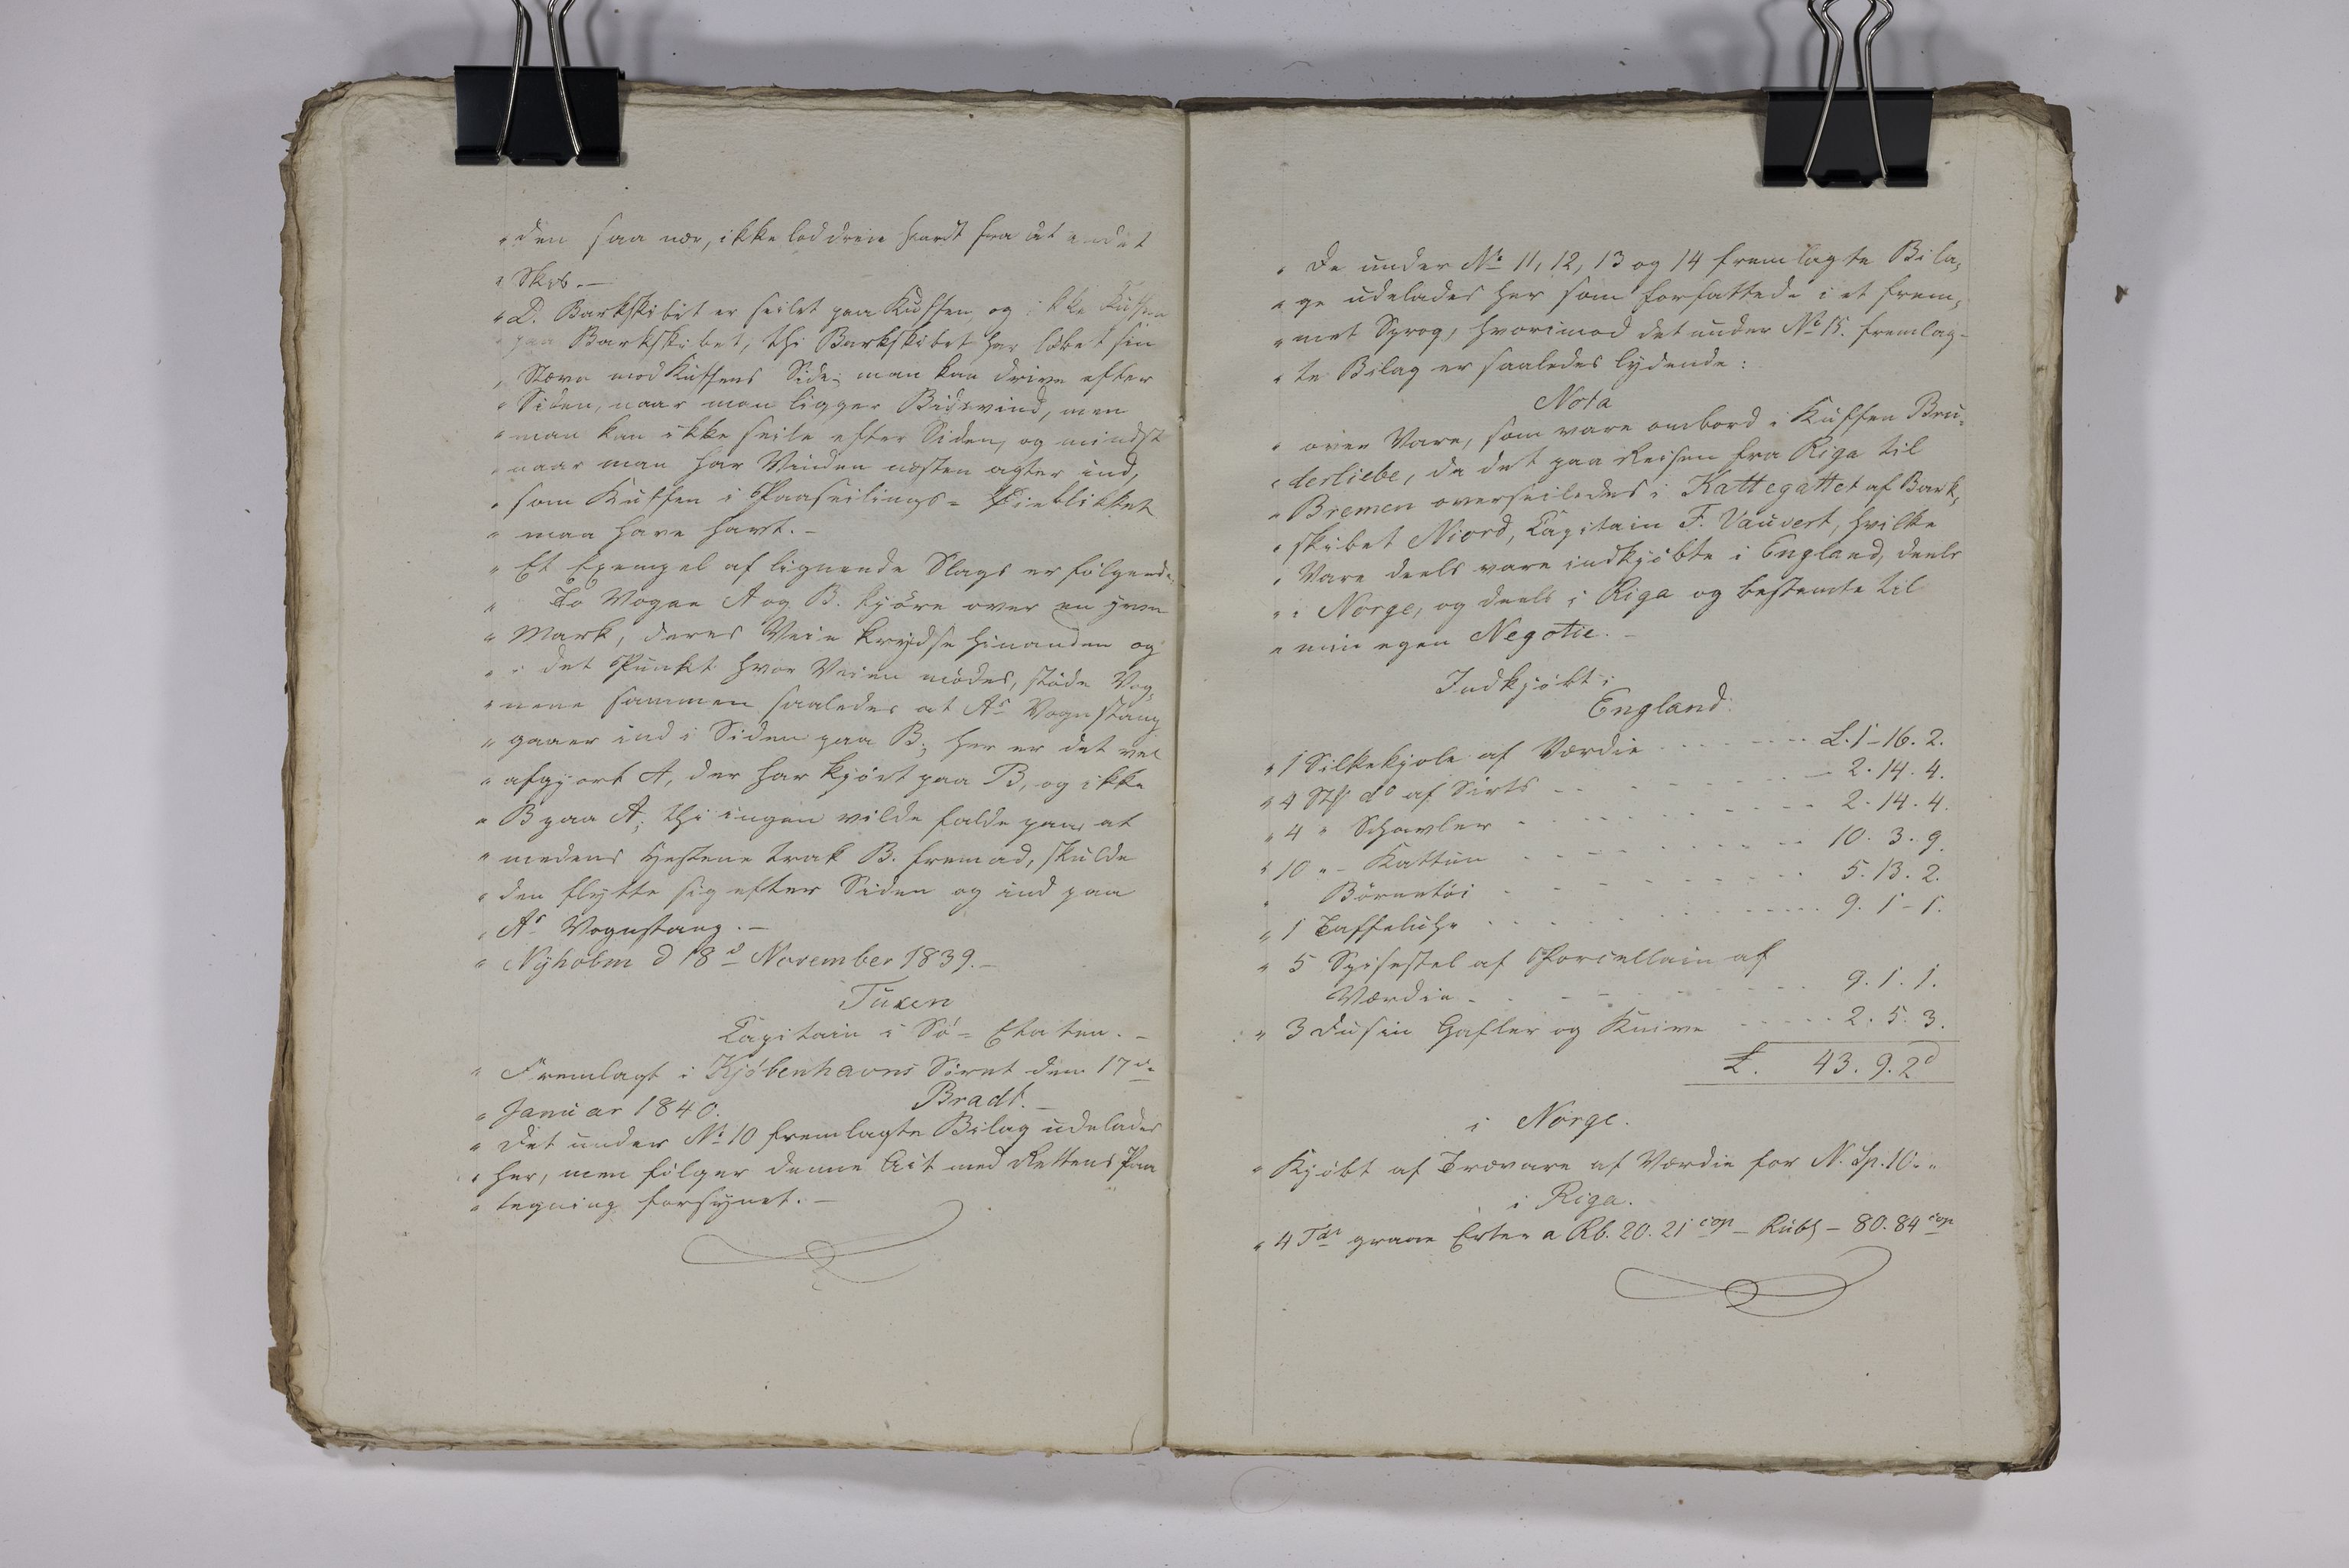 " den saa nær, ikke lod dreie haardt fra et andet
" Skib. —
" D. Barkskibet er seilet paa Kuffen og ikke Kuffen
paa Barkskibet, thi Barkskibet har løbet sin
" Stævn mod Kuffens Side; man kan drive efter
" Siden, naar man ligger Bidevind, men
" man kan ikke seile efter Siden, og mindst
" naar man har Vinden næsten agter ind,
" som Kuffen i Paaseilings-Øieblikket
" maa have havt. —
" Et Exempel af lignende Slags er følgende.
" To Vogne A og B. kjøre over en jevn
" Mark, deres Veie krydse hinanden og
" i det Punkt hvor Veien mødes, støde Vog-
" nene sammen saaledes at As Vognstang
" gaaer ind i Siden paa B; her er det vel
" afgjort A, der har kjørt paa B, og ikke
" B paa A; thi ingen vilde falde paa, at
" medens Hestene trak B. fremad, skulde
" den flytte sig efter Siden og ind paa
" As Vognstang. —
" Nyholm d 18d November 1839. —
Tuxen
Capitain i Sø-Etaten. —
" Fremlagt i Kjøbenhavns Søret den 17de
" Januar 1840. Bradt. —
" Det under No 10 fremlagte Bilag udelades
" her, men følger denne Act med Rettens Paa
" tegning forsynet. —
" De under No 11, 12, 13 og 14 fremlagte Bila-
" ge udelades her som forfattede i et frem-
" met Sprog, hvorimod det under No 15. fremlag-
" te Bilag er saaledes lydende:
Nota
" over Vare, som vare ombord i Kuffen Bru-
" derliebe, da det paa Reisen fra Riga til
" Bremen overseiledes i Kattegattet af Bark-
" skibet Niord, Capitain F. Vauvert, hvilke
" Vare deels vare indkjøbte i England, deels
" i Norge, og deels i Riga og bestemte til
" min egen Negotie. —
Indkjøbt i
England:
" 1 Silkekjole af Værdie . . . . £. 1–16. 2.
" 4 Stk do af Sirts . . . . 2. 14. 4.
" 4 " Schavler . . . . 2. 14. 4.
" 10 " – Kattun . . . . 10. 3. 9.
" Børnetøi . . . . 5. 13. 2.
" 1 Taffeluhr . . . . 9. 1 – 1.
" 5 Spisestel af Porcellain af
Værdie . . . . 9. 1. 1.
" 3 Dusin Gafler og Knive . . . . 2. 5. 3.
£. 43. 9. 2d
i Norge.
" Kjøbt af Trævare af Værdie for N. Sp. 10. "
i Riga.
" 4 Tdr graae Erter a Rb. 20. 21 cop – Rubl – 80. 84 cop